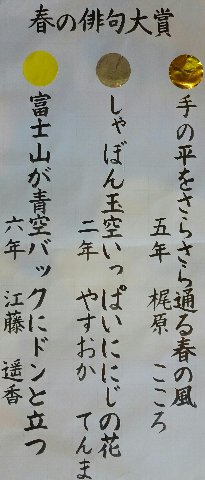 春の俳句大賞
手の平をさらさら通る春の風
五年 梶原 こころ
しゃぼん玉空いっぱいににじの花
二年 やすおか てんま
富士山が青空バックにドンと立つ
六年 江藤 遥香